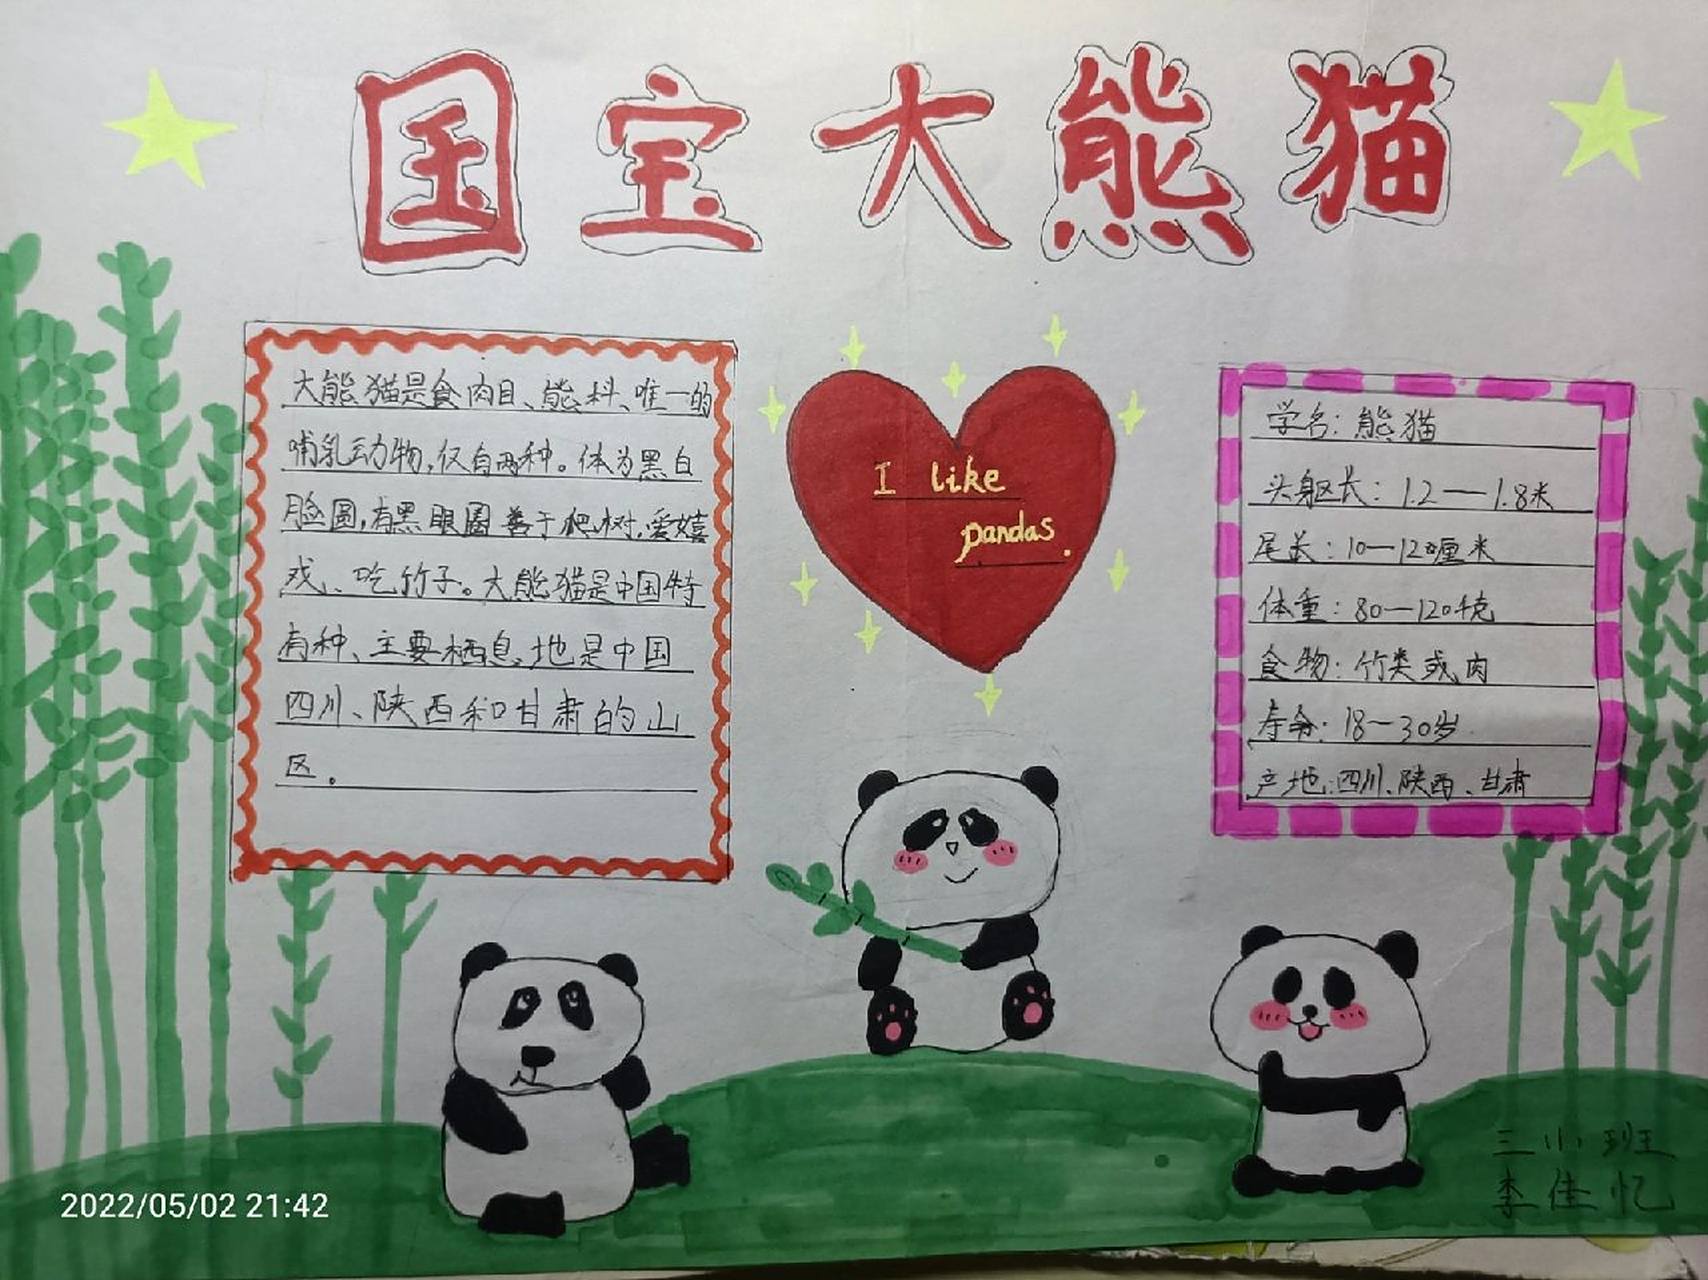 国宝大熊猫
大熊猫是食肉目、熊科、唯一的
哺乳动物,仅有两种。体为黑白
脸圆,有黑眼圈善于爬树,爱嬉
戏、吃竹子。大熊猫是中国特
有种、主要栖息地是中国
四川、陕西和甘肃的山
区。
I like
pandas.
学名:熊猫
头躯长:1.2—1.8米
尾长:10—120厘米
体重:80—120千克
食物:竹类或肉
寿命:18—30岁
产地:四川、陕西、甘肃
三小班
李佳忆
2022/05/02 21:42